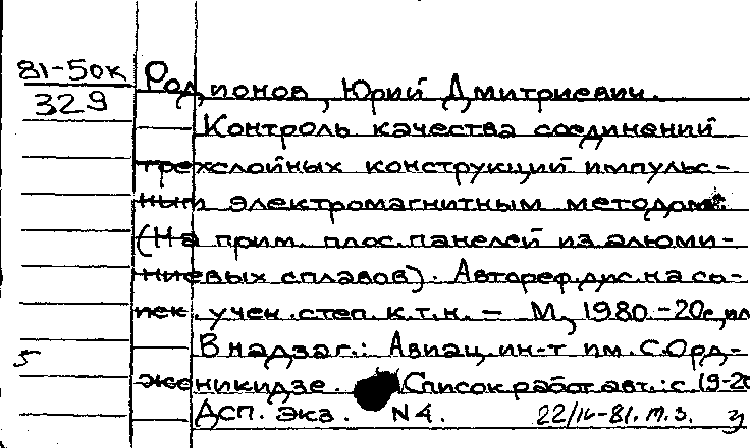 81-50к
329
Родионов, Юрий Дмитриевич.
Контроль качества соединений
трехслойных конструкций импульс-
ным электромагнитным методом.
(На прим. плос. панелей из алюми-
ниевых сплавов). Автореф. дис. на со-
иск. учен. степ. к.т.н. – М., 1980. – 20с, ил
В надзаг.: Авиац. ин-т им. С. Орд-
жоникидзе. Список работ авт.: с. 19-20
Дсп. Экз. N4. 22/IV-81. М.З.
5